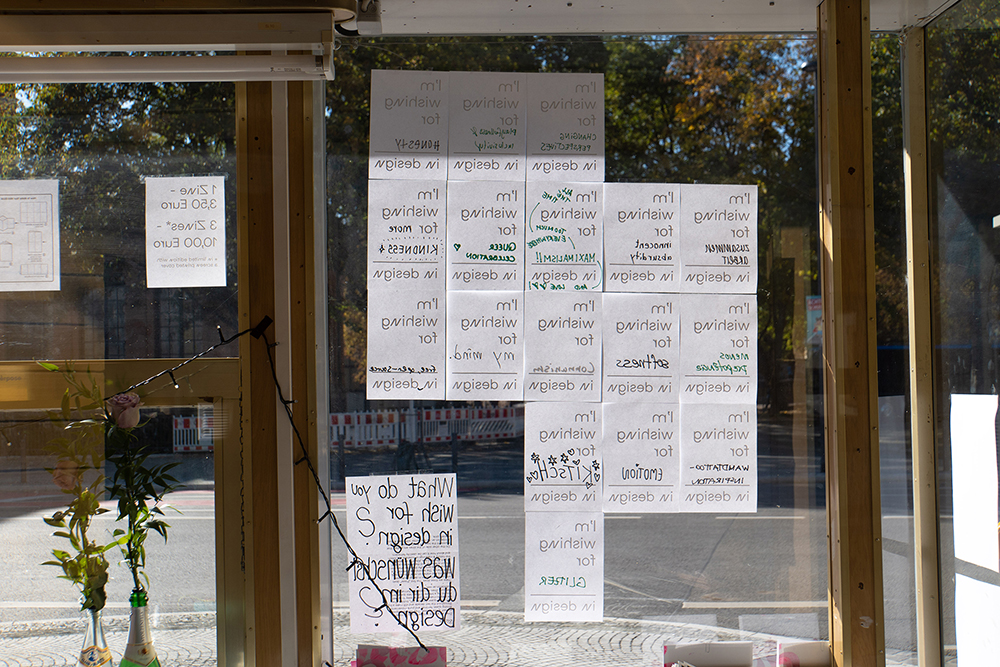 1 Zine -
3,50 Euro
3 Zines* -
10,00 Euro
I'm
wishing
for
HONESTY
in design
I'm
wishing
for
playfulness &
in design
I'm
wishing
for
CHANGING
PERSPECTIVES
in design
I'm
wishing
for more
KINDNESS
in design
I'm
wishing
for
QUEER
CELEBRATION
in design
I'm
wishing
for
ALL THE TIME
TOO MUCH
EVERYWHERE
MAXIMALISM!!
AND LOVE
in design
I'm
wishing
for
innocent
absurdity
in design
I'm
wishing
for
ZUSAMMEN
ARBEIT
in design
I'm
wishing
for
in design
I'm
wishing
for
my mind.
in design
I'm
wishing
for
Communism
in design
I'm
wishing
for
softness
in design
I'm
wishing
for
menos
in design
I'm
wishing
for
KITSCH
in design
I'm
wishing
for
EMOTION
in design
I'm
wishing
for
WANDTATTOO-
INSPIRATION
in design
I'm
wishing
for
GLITZER
in design
What do you
wish for
in design?
was wünschst
du dir im
Design?